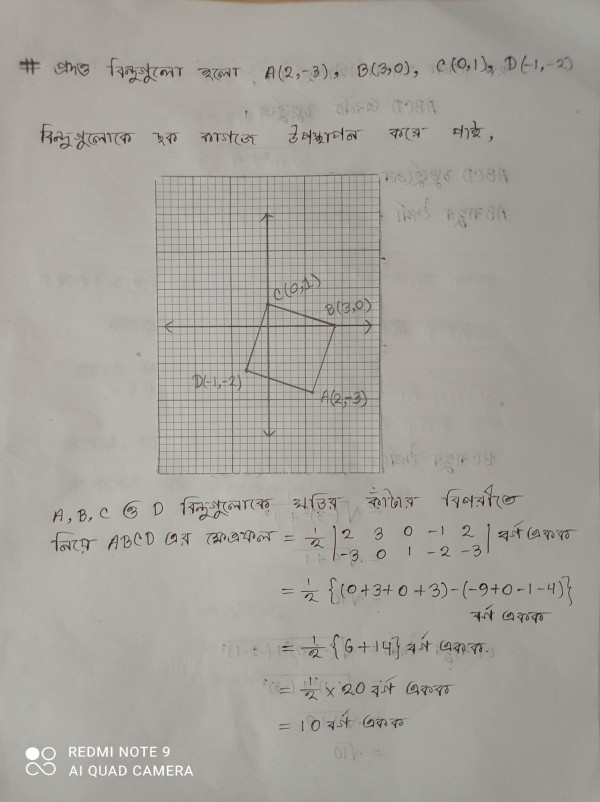 # প্রদত্ত বিন্দুগুলো হলো A(2,-3), B(3,0), C(0,1), D(-1,-2)
বিন্দুগুলোকে ছক কাগজে উপস্থাপন করে পাই,
C(0,1)
B(3,0)
D(-1,-2)
A(2,-3)
A, B, C ও D বিন্দুগুলোকে ঘড়ির কাঁটার বিপরীতে
নিয়ে ABCD এর ক্ষেত্রফল = 1/2 | 2 3 0 -1 2 | বর্গ একক
-3 0 1 -2 -3
= 1/2 {(0+3+0+3)-(-9+0-1-4)}
বর্গ একক
= 1/2 {6+14} বর্গ একক.
= 1/2 × 20 বর্গ একক
= 10 বর্গ একক
REDMI NOTE 9
AI QUAD CAMERA